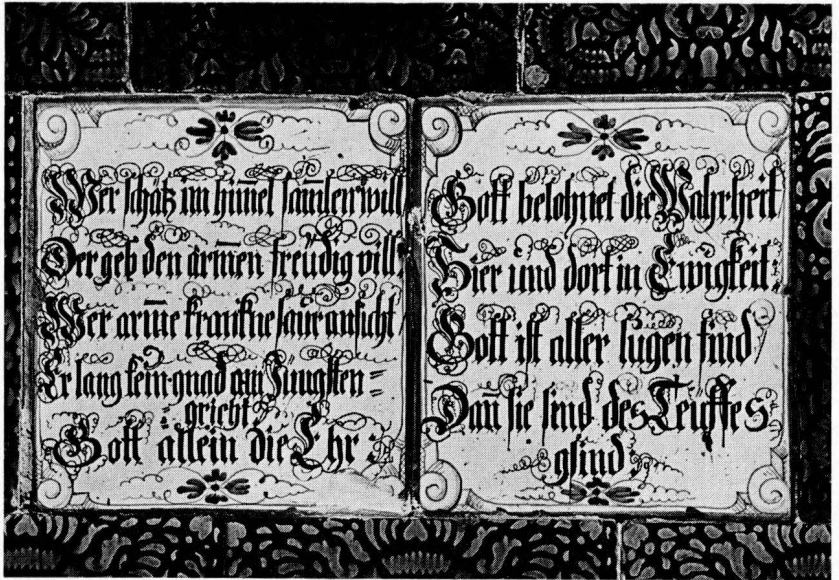 Wer schatz im him̄el sam̄len will
Der geb den armen freüdig vill.
Wer arme krankne saur ansicht
Er lang kein gnad am Jüngsten=
gricht
Gott allein die Ehr:
Gott belohnet die Wahrheit
Hier und dort in Ewigkeit:
Gott ist aller lügen find
Dan̄ sie sind des Teuffes
gsind